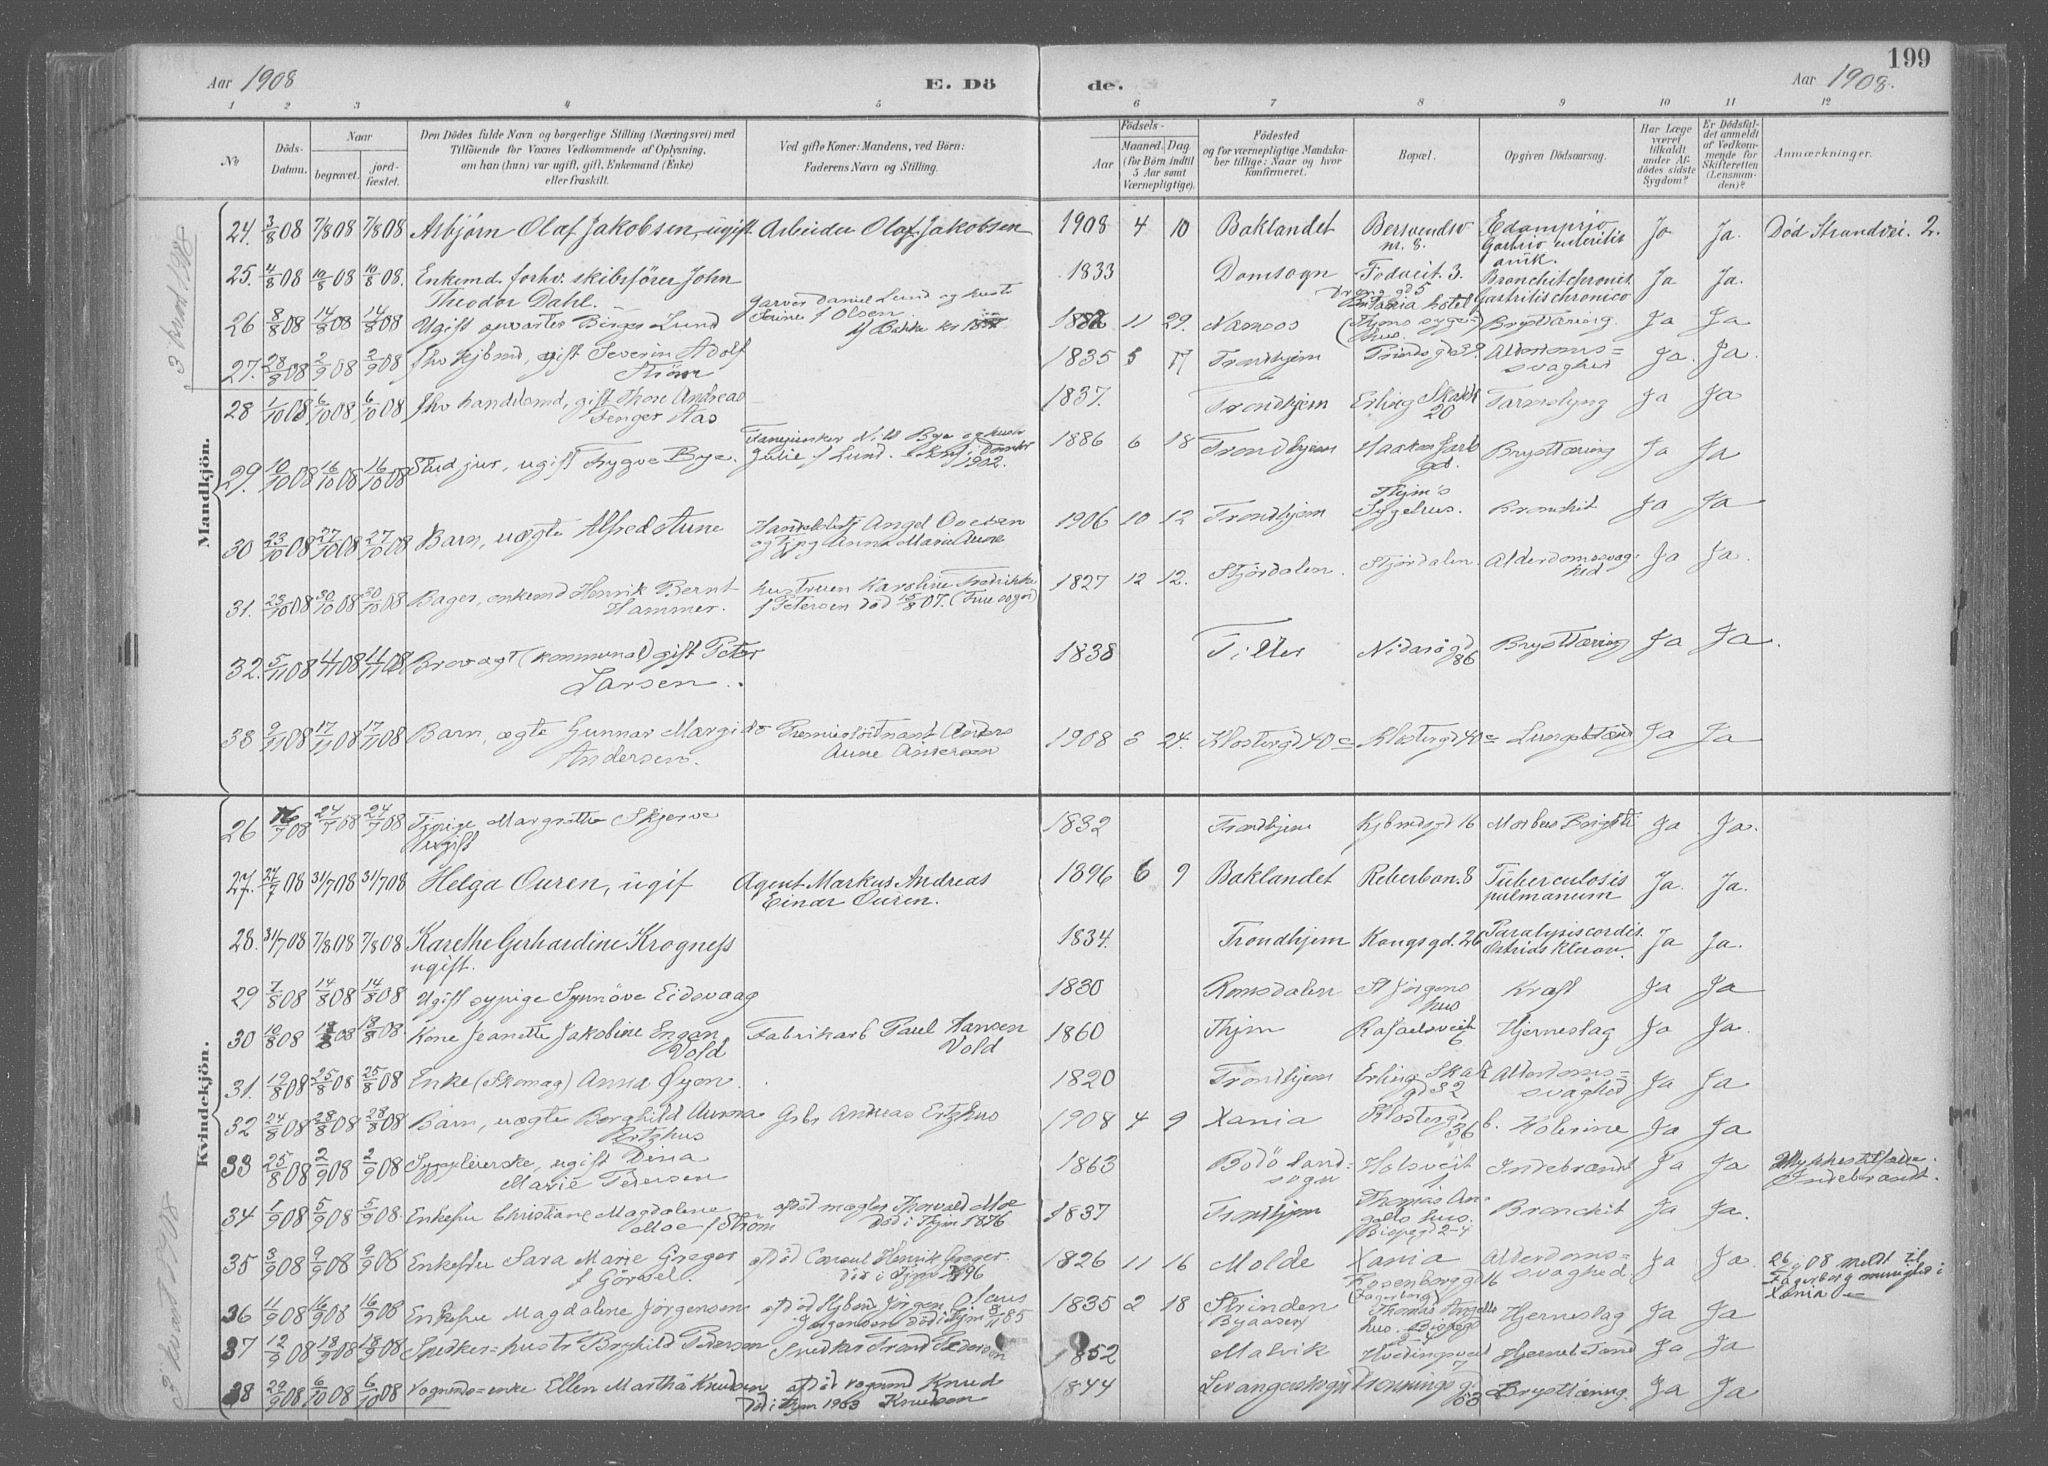 199
Aar 1908
E. Dö
de.
Aar 1908.
1 2 3 4 5 6 7 8 9 10 11 12
No
Döds-Datum.
Naar
begravet.
jord-fæstet.
Den Dödes fulde Navn og borgerlige Stilling (Næringsvei) med
Tilföiende for Voxnes Vedkommende af Oplysning,
om han (hun) var ugift, gift, Enkemand (Enke)
eller fraskilt.
Ved gifte Koner: Mandens, ved Börn:
Faderens Navn og Stilling.
Födsels-
Aar
Maaned. Dag
(for Börn indtil
5 Aar samt
Værnepligtige).
Födested
og for værnepligtige Mandska-
ber tillige: Naar og hvor
konfirmeret.
Bopæl.
Opgiven Dödsaarsag.
Har Læge
været
tilkaldt
under Af-
dödes sidste
Sygdom?
Er Dödsfal-
det anmeldt
af Vedkom-
mende for
Skifteretten
(Lensman-
den)?
Anmærkninger.
Mandkjön.
24. 3/8 08 7/8 08 7/8 08 Asbjörn Olaf Jakobsen, ugift Arbeider Olaf Jakobsen 1908 4 10 Baklandet Bersvendsv nr. 8. Gastrio enteritis Ja Ja. Död Strandvei. 2.
25. 4/8 08 10/8 08 10/8 08. Enkemd. forhv. skibsförer John
Theodor Dahl. 1833 Domsogn Todveit. 3. Bronchit chronic Ja Ja.
26 8/8 08 14/8 08 14/8 08 Ugift opvarter Birger Lund Garver Daniel Lund og hustr
f Olsen. 11 29. Namsos Britania hotel Gastritis chronico
Brysttæring. Ja Ja
27. 28/8 08 2/9 08 2/9 08 fhv kjbmd, gift Severin Adolf
Ström 1835 5 17 Trondhjem Alderdoms=
svaghed Ja. Ja.
28 1/10 08 6/10 08 6/10 08 fhv handelsmd, gift Thore Andreas
Fenger Aas 1837. Trondhjem Erling Skakk
20 Ja Ja
29. 10/10 08 16/10 08 16/10 08 Stud jur, ugift Trygve Bye. Bye og hustr
Julie f Lund.
1902. 1886 6 18 Trondhjem Haakon Jarls
gd. Brysttæring Ja Ja
30 23/10 08 27/10 08 27/10 08 Barn, uægte Alfred Stune
og Anna Marie Aune 1906 10 12 Trondhjem Thjm's
Sygehus. Bronchit Ja Ja
31. 23/10 08 30/10 08 30/10 08 Bager, enkemd Henrik Bernt
Hammer. hustruen Karoline Fredrikke
f Petersen död 15/8 07. 1827 12 12. Stjördalen. Stjördalen. Alderdomssvag-
hed Ja Ja.
32. 5/11 08 11/11 08 11/11 08 Brovagt (kommunal) gift Peter
Larsen. 1838 Tiller Nidarö gd
86 Brysttæring Ja Ja.
33 9/11 08 17/11 08 17/11 08 Barn, ægte Gunnar Margido
Andersen. Premierlöitnant Anders
Aune Andersen 1908 24. Klostergd 40 c Klostergd 40 c Ja Ja
Kvindekjön.
26 16/7 08 24/7 08 24/7 08 Margrethe Skjerve
Ugift 1832 Trondhjem Kjbmdsgd 16 Morbus Brigthi Ja Ja.
27. 27/7 08 31/7 08 31/7 08 Helga Ouren, ugif Agent Markus Andreas
Einar Ouren. 1896 6 9 Baklandet Reberban. 8 Tuberculosis
pulmanum Ja. Ja.
28. 31/7 08 7/8 08 7/8 08 Karethe Gerhardine Krogness
ugift. 1834. Trondhjem Kongsgd. 26 Paralysis cordis Ja Ja.
29 7/8 08 14/8 08 14/8 08 Ugift sypige Synnöve Eidsvaag 1830 Romsdalen St Jörgens
hus Kræft Ja Ja
30 10/8 08 18/8 08 18/8 08. Kone Jeanette Jakobine Engan
Vold Fabrikarb Paul Hansen
Vold 1860 Thjm Rafaelsveit
6 Hjerneslag Ja Ja.
31. 19/8 08 25/8 08 25/8 08 Enke (Skomag) Anna Öyen. 1820 Trondhjem Erling Skak
gd 32 Alderdoms=
svaghed Ja Ja
32 24/8 08 28/8 08 28/8 08 Barn, uægte Borghild Aurora
Ertzhus Grbr Andreas Ertzhus 1908 4 9 Xania Klostergd
36 b. Kolerine Ja Ja
33 25/8 08 2/9 08 2/9 08 ugift Dina
Marie Pedersen 1863 Bodö land=
sogn Holsveit
1 Indebrændt Ja Ja Indebrændt.
34 1/9 08 5/9 08 5/9 08. Enkefru Christiane Magdalene
Moe f Ström afdöd mægler Thorvald Moe
Död i Thjm 1876 1837 Trondhjem Thomas An-
gells hus.
Bispegd 2-4 Bronchit Ja Ja.
35 3/9 08 9/9 08 9/9 08 Enkefru Sara Marie Greger
f Görvel. afdöd Consul Henrik Greger
död i Thjm 1896 1826 11 16 Molde Xania
Rosenborggd 16
(Fagerborg) Alderdoms=
svaghed Ja Ja. 26/9 08 meldt til
Fagerborg menighed i
Xania
36 11/9 08 16/9 08 16/9 08 Enkefru Magdalene Jörgensen afdöd Kjbmd Jörgen Olaus
Jörgensen död i Thjm 85 1835 2 18 Strinden
Byaasen Thomas Angells
hus. Bispegd
2-4 Hjerneslag Ja Ja
37 12/9 08 18/9 08 18/9 08 Snedker=hustr Brynhild Pederson Snedker Trond Pederson 1852 Malvik Hvedingsveit
7 Ja Ja
38 29/9 08 6/10 08 6/10 08 Vognmds=enke Ellen Martha Knudsen afdöd vognmd Knud
död i Thjm 1903 Knudson 1844 Levanger sogn Dronnings gd
63 Brysttæring. Ja Ja